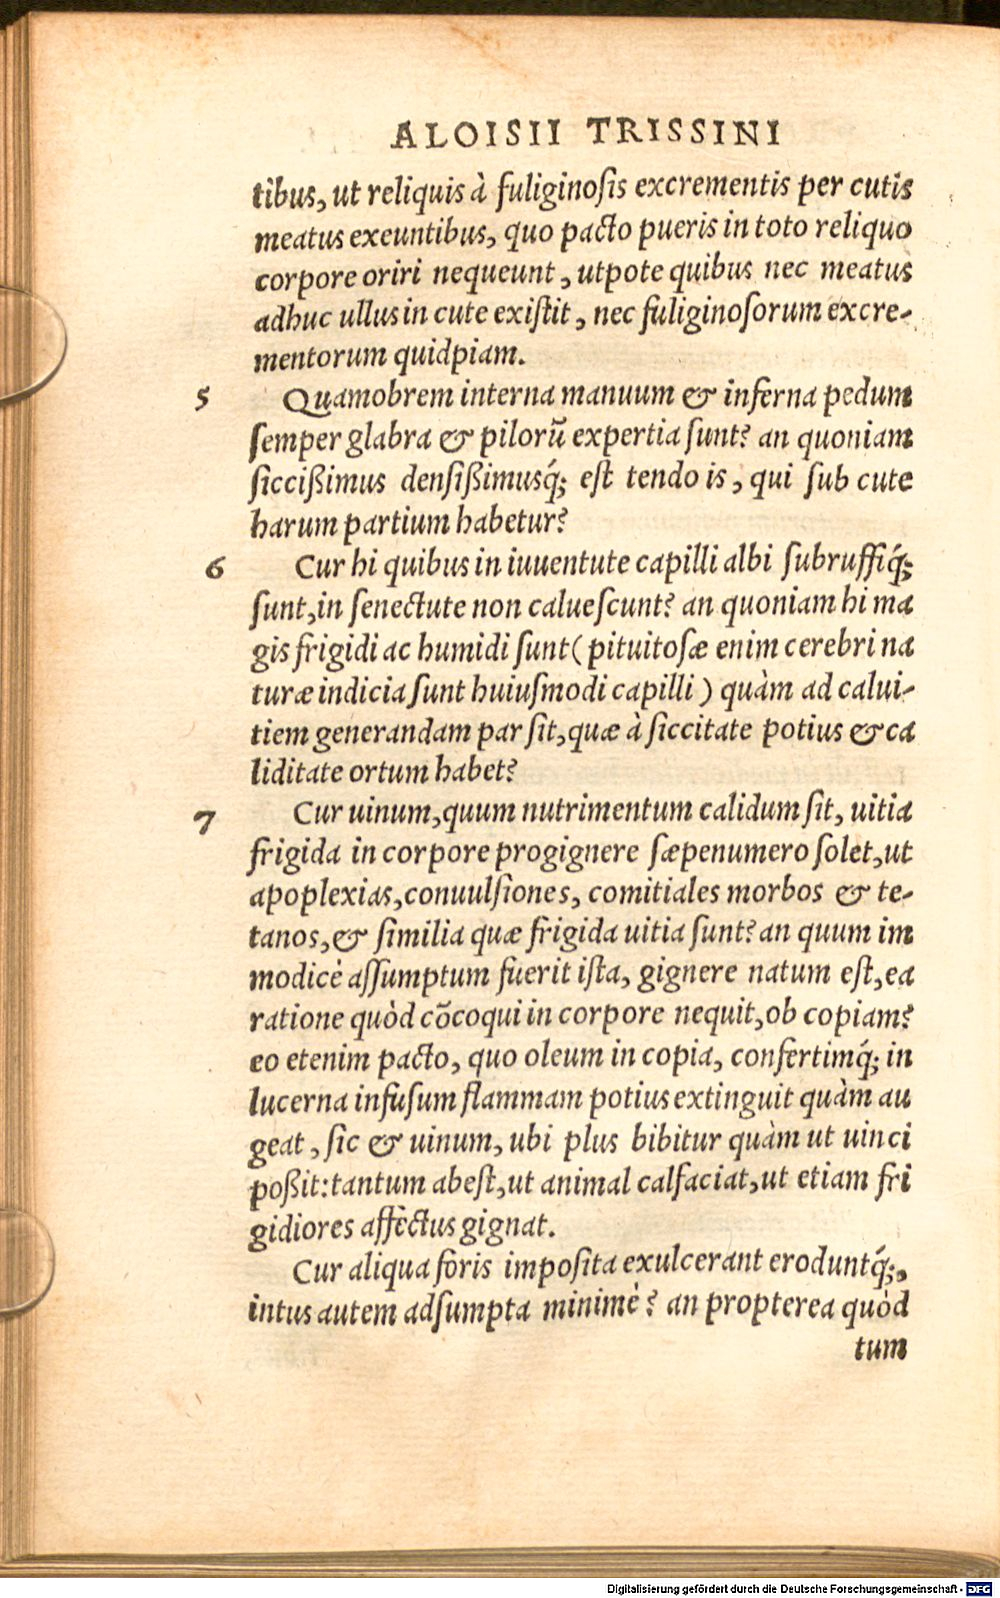 ALOISII TRISSINI
tibus, ut reliquis à fuliginosis excrementis per cutis
meatus exeuntibus, quo pacto pueris in toto reliquo
corpore oriri nequeunt, utpote quibus nec meatus
adhuc ullus in cute existit, nec fuliginosorum excre-
mentorum quidpiam.
5 Quamobrem interna manuum & inferna pedum
semper glabra & pilorũ expertia sunt? an quoniam
siccißimus densißimusq́; est tendo is, qui sub cute
harum partium habetur?
6 Cur hi quibus in iuuentute capilli albi subruffiq́;
sunt, in senectute non caluescunt? an quoniam hi ma
gis frigidi ac humidi sunt (pituitosæ enim cerebri na
turæ indicia sunt huiusmodi capilli) quàm ad calui-
tiem generandam par sit, quæ à siccitate potius & ca
liditate ortum habet?
7 Cur uinum, quum nutrimentum calidum sit, uitia
frigida in corpore progignere sæpenumero solet, ut
apoplexias, conuulsiones, comitiales morbos & te-
tanos, & similia quæ frigida uitia sunt? an quum im
modicè assumptum fuerit ista, gignere natum est, ea
ratione quòd cõcoqui in corpore nequit, ob copiam?
eo etenim pacto, quo oleum in copia, confertimq́; in
lucerna infusum flammam potius extinguit quàm au
geat, sic & uinum, ubi plus bibitur quàm ut uinci
poßit: tantum abest, ut animal calfaciat, ut etiam fri
gidiores affectus gignat.
Cur aliqua foris imposita exulcerant eroduntq́;,
intus autem adsumpta minimè? an propterea quòd
tum
Digitalisierung gefördert durch die Deutsche Forschungsgemeinschaft - DFG